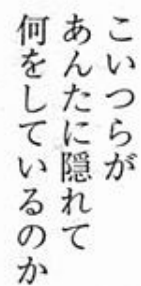 こいつらが
あんたに隠れて
何をしているのか